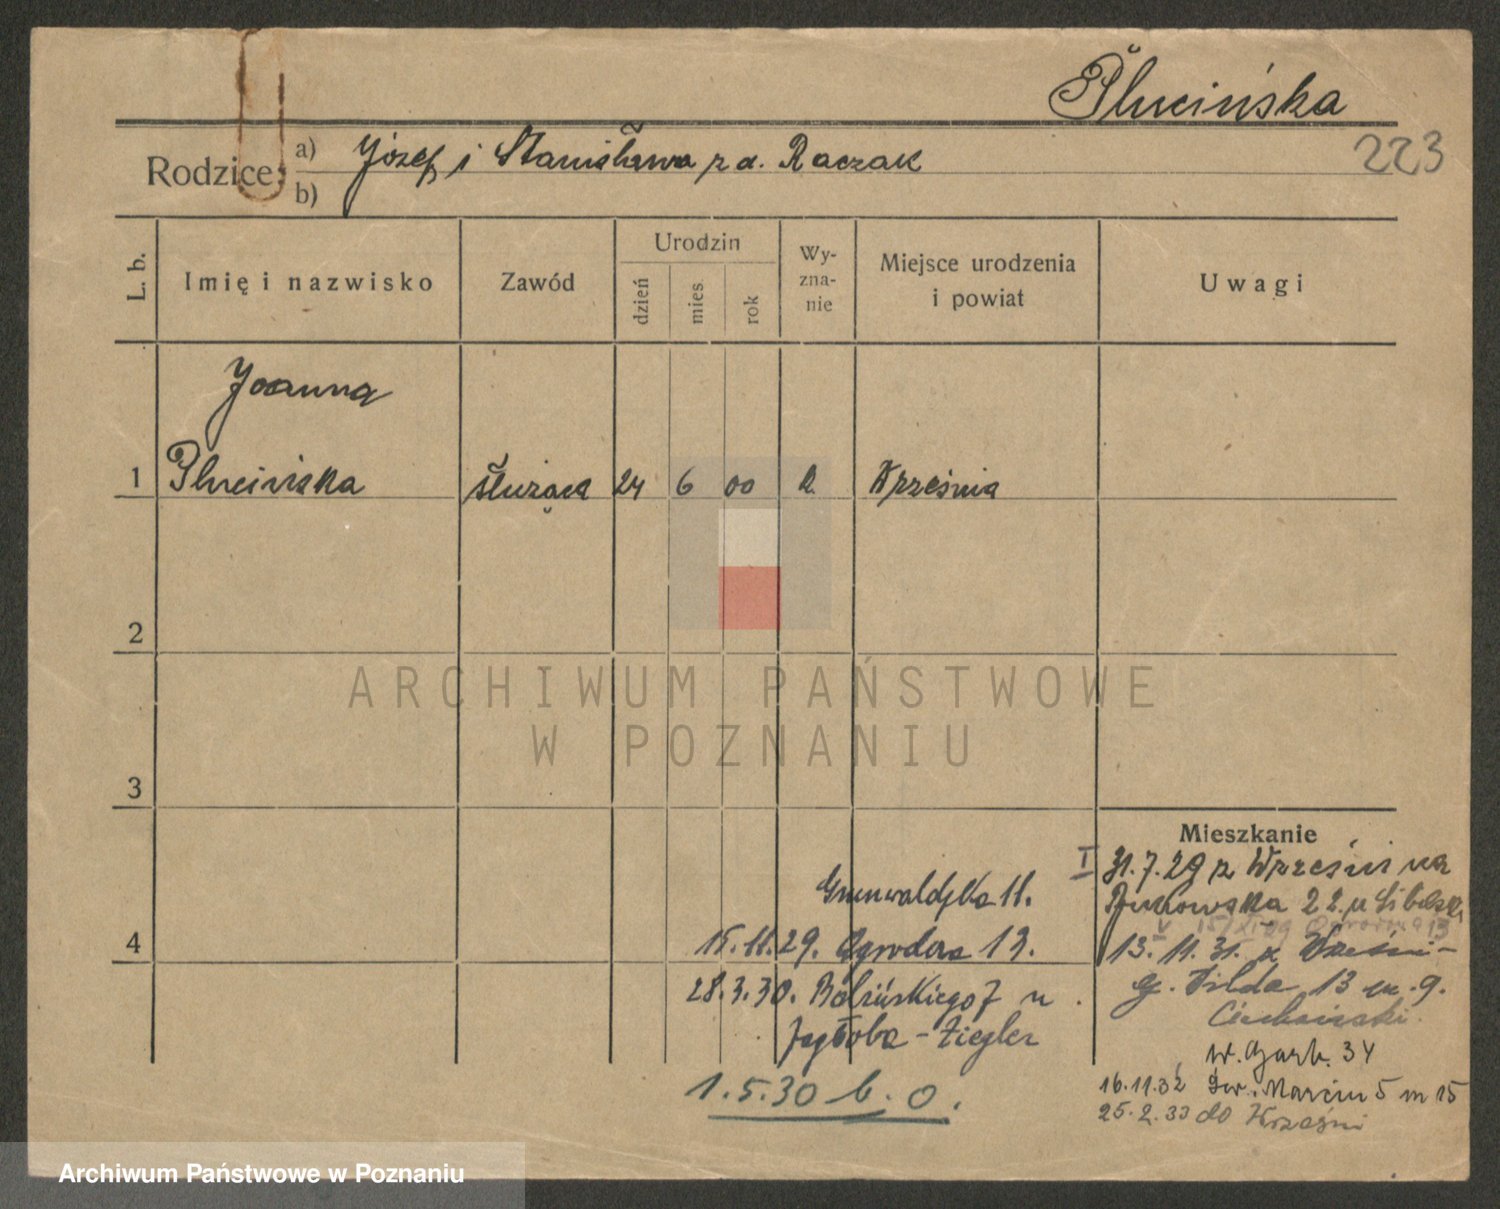 Plucińska
223
Rodzice: a) Józef i Stanisława z d. Raczak
b)
L. b.
Imię i nazwisko
Zawód
Urodzin
dzień
mies.
rok
Wy-
zna-
nie
Miejsce urodzenia
i powiat
Uwagi
Joanna
1 Plucińska służąca 24 6 00 R. Września
2
ARCHIWUM PAŃSTWOWE
W POZNANIU
3
4
Grunwaldzka 11.
15.11.29. Ogrodowa 13.
28.3.30. Bolińskiego 7 u
Jagłoba-Ziegler
1.5.30 b. o.
Mieszkanie
I 31.7.29 z Wrześni na
Bukowska 22. u
13. 11. 31. z Wrześni -
g. Wilda 13 m. 9.
w. Garb. 34
16.11.32 Św. Marcin 5 m 15
25.2.33 do Wrześni
Archiwum Państwowe w Poznaniu